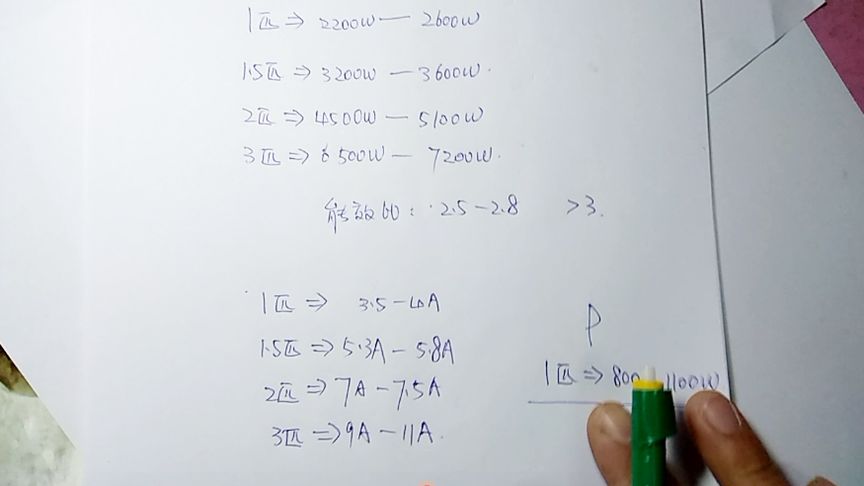 1匹⇒2200W—2600W
1.5匹⇒3200W—3600W.
2匹⇒4500W—5100W
3匹⇒6500W—7200W.
能效比：2.5-2.8 >3.
1匹⇒3.5-4A
1.5匹⇒5.3A-5.8A
2匹⇒7A-7.5A
3匹⇒9A-11A.
P
1匹⇒800 1100W